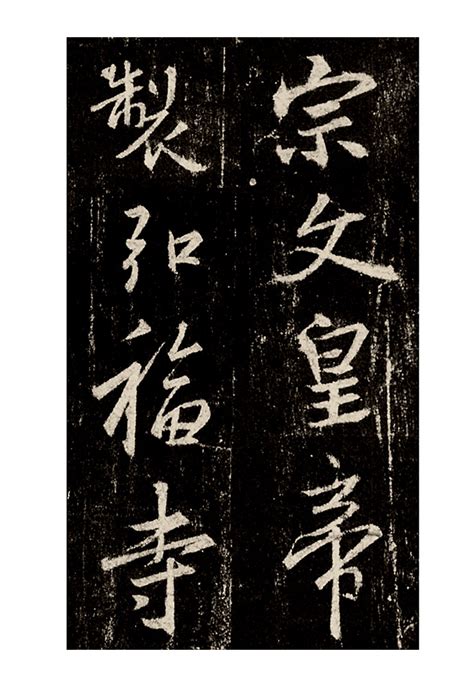 宗文皇帝
製弘福寺